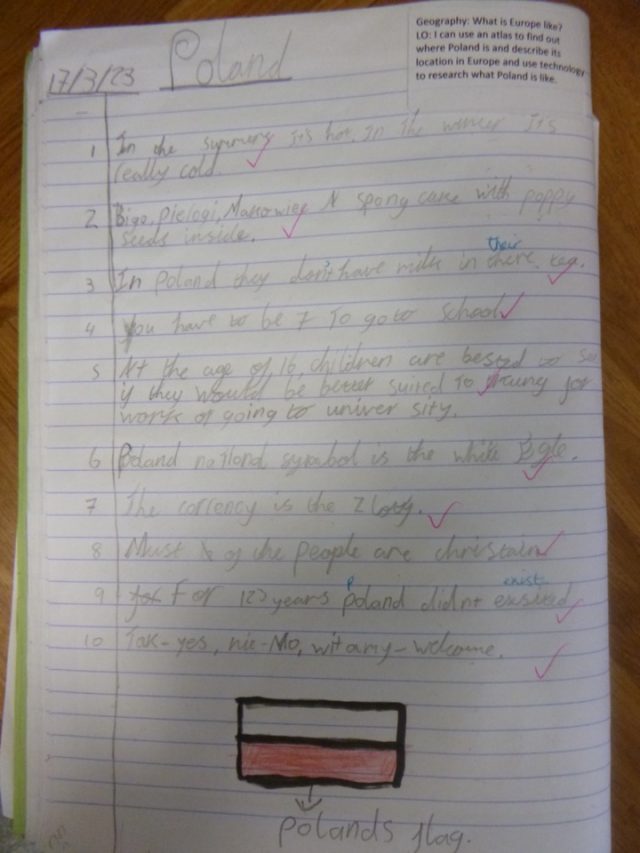 Geography: What is Europe like?
LO: I can use an atlas to find out
where Poland is and describe its
location in Europe and use technology
to research what Poland is like.
17/3/23 Poland
1 In the summers it's hot. In the winter It's
really cold.
2 Bigo, Pielogi, Makowiec A spong cake with poppy
seeds inside.
their
3 In Poland they don't have milk in there tea.
4 You have to be 7 To go to school
5 At the age of 16, children are tested to see
if they would be better suited To for
work or going to univer sity.
6 Poland national symbol is the white Egle.
7 The corrency is the Zloty.
8 Must of the people are christain
P exist
9 for For 123 years poland didnt exsited
10 Tak-yes, nie-No, witamy-welcome.
Polands flag.